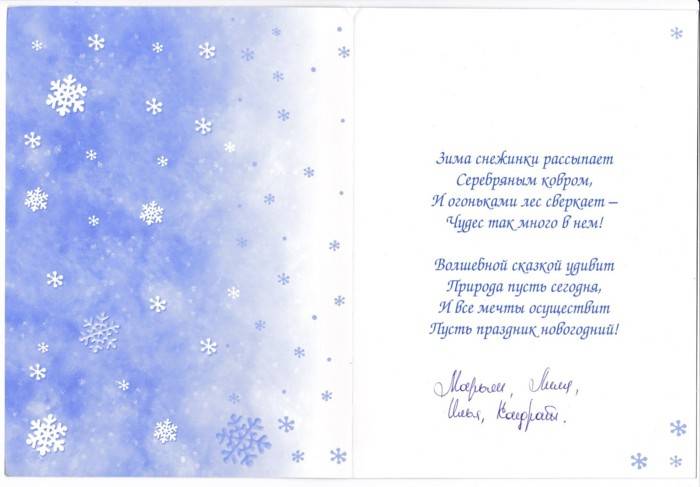 Зима снежинки рассыпает
Серебряным ковром,
И огоньками лес сверкает –
Чудес так много в нем!
Волшебной сказкой удивит
Природа пусть сегодня,
И все мечты осуществит
Пусть праздник новогодний!
Марьям,
Илья, Кондрат.